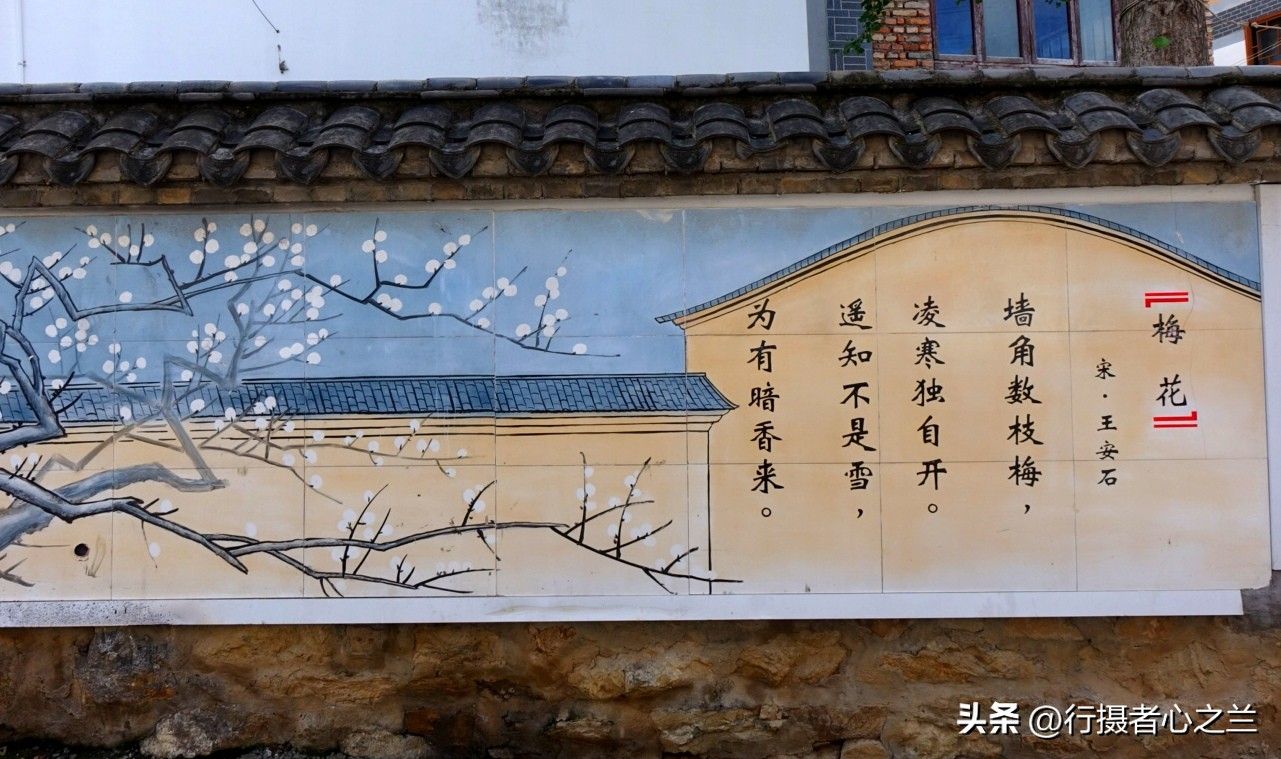 『梅花』
宋·王安石
墙角数枝梅，
凌寒独自开。
遥知不是雪，
为有暗香来。
头条 @行摄者心之兰